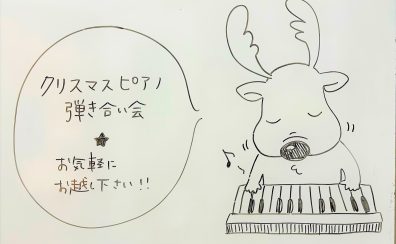 クリスマスピアノ
弾き合い会
お気軽に
お越し下さい!!